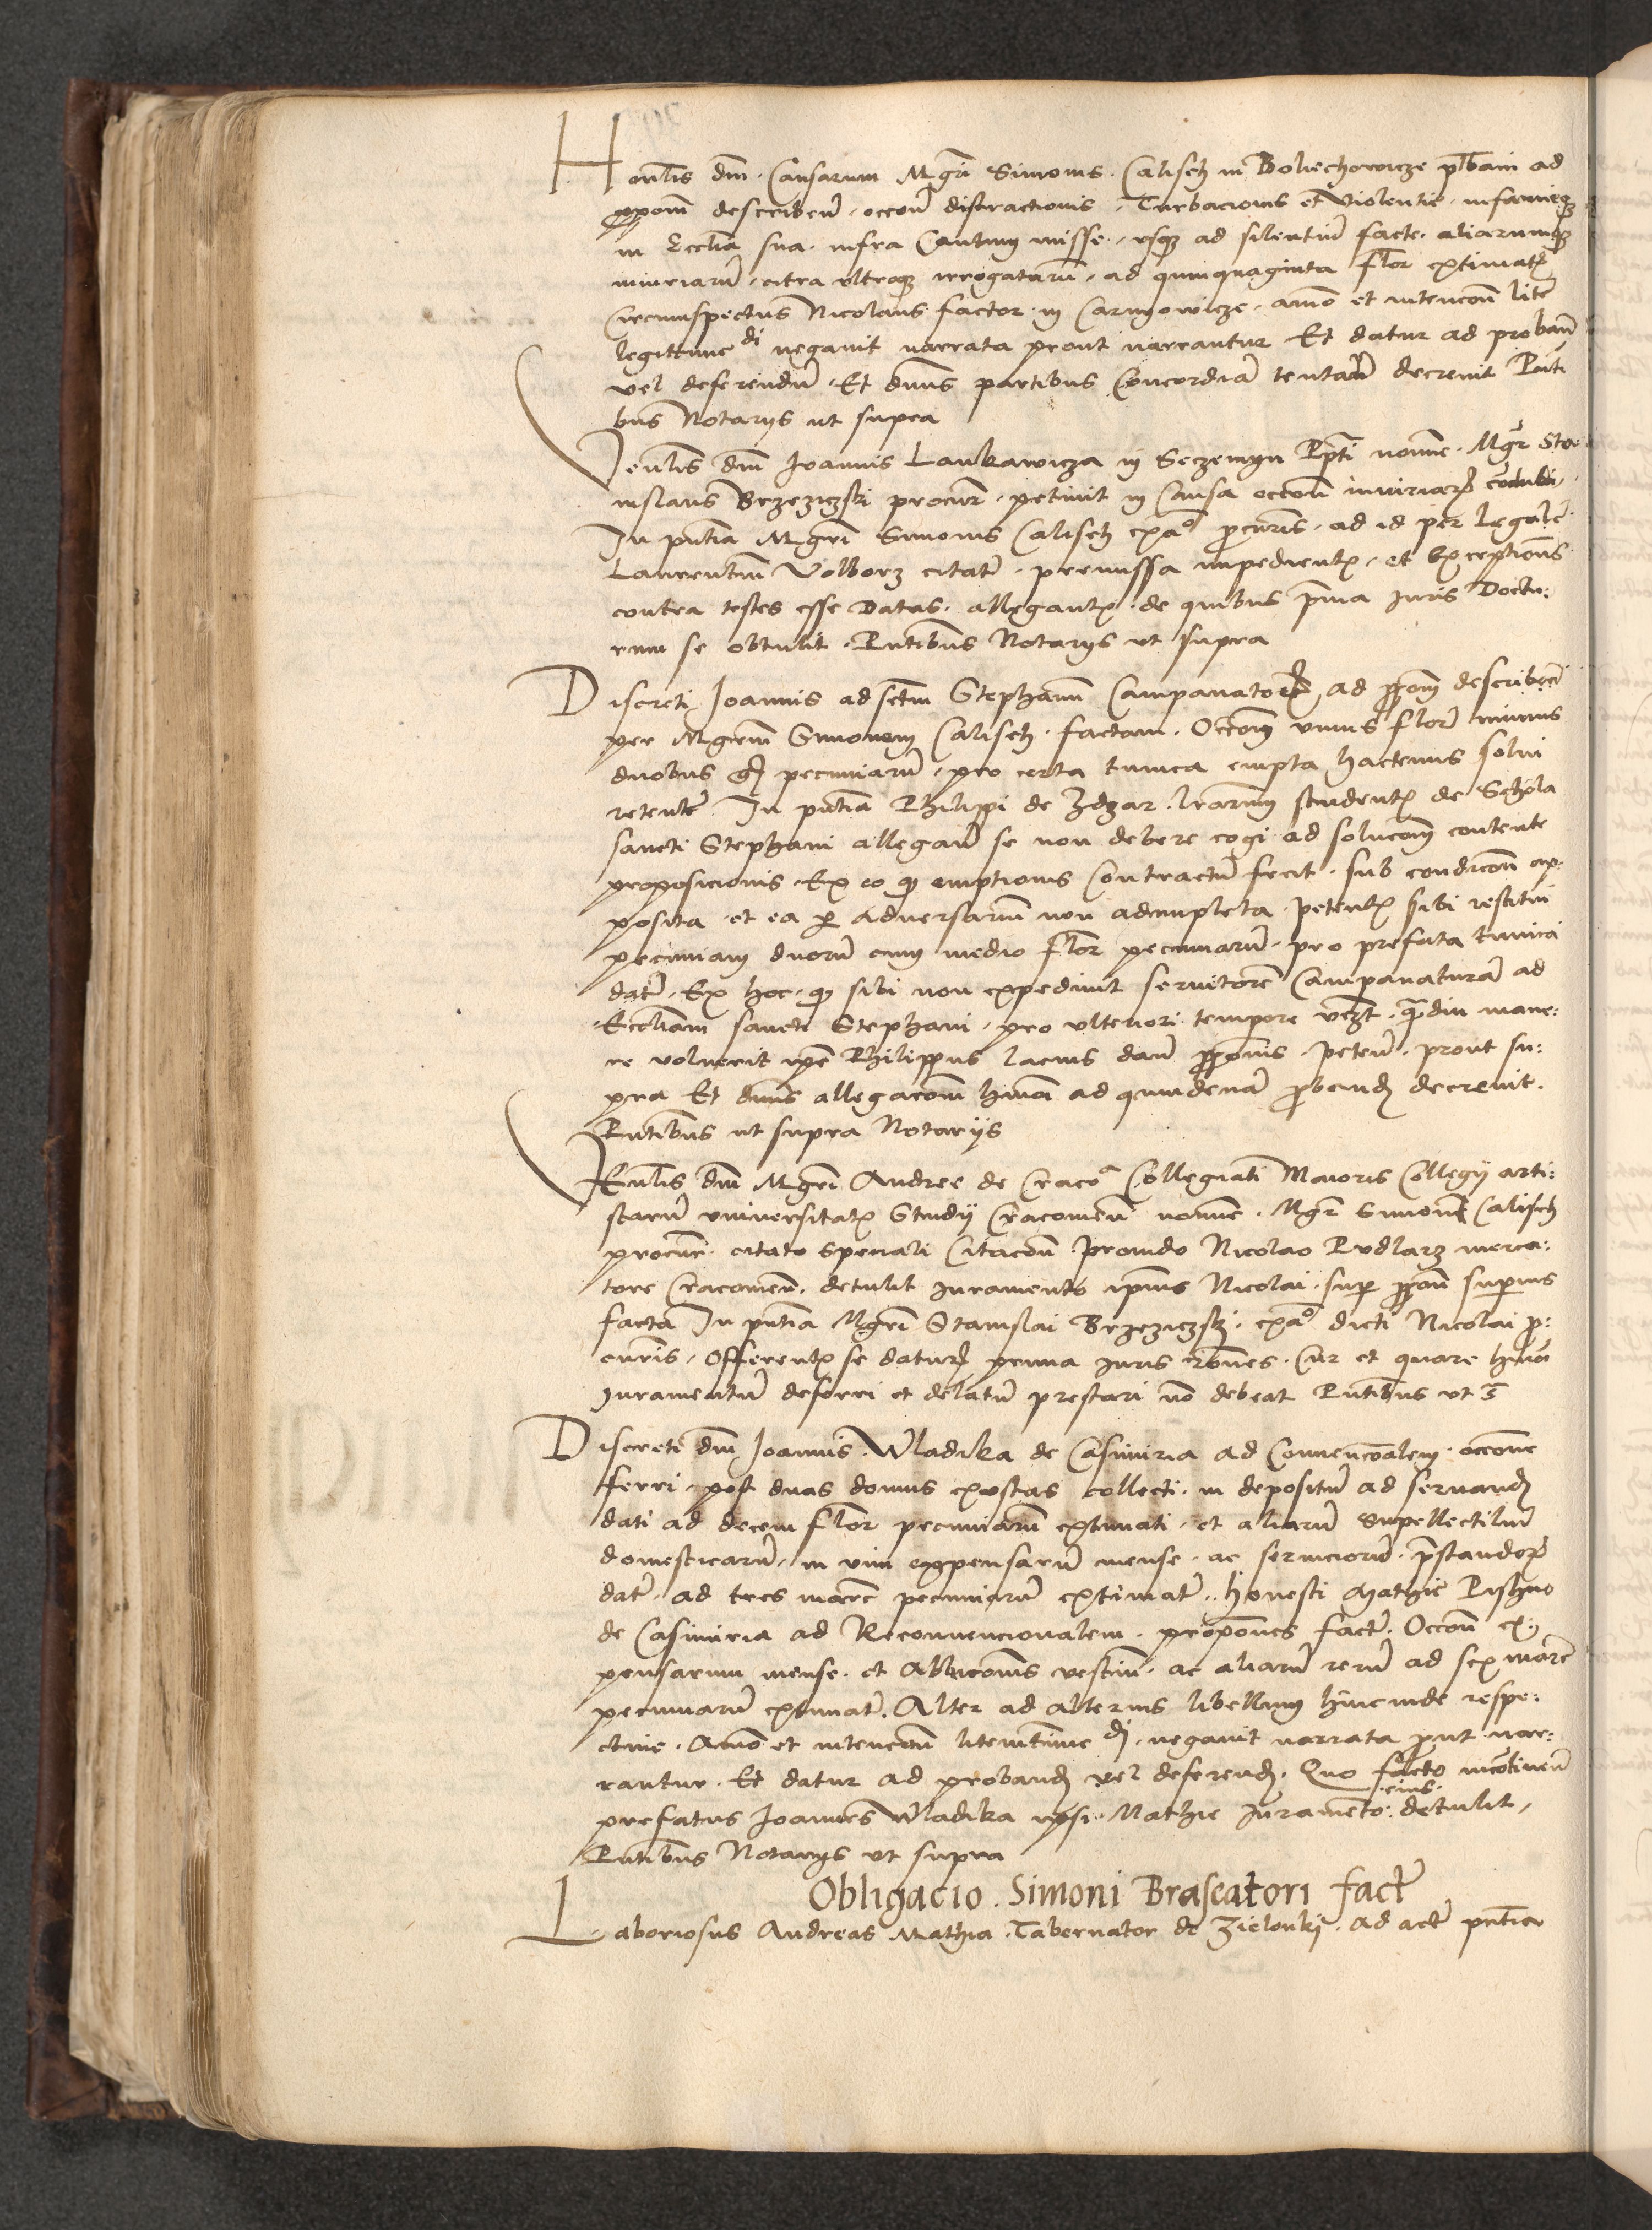 Honlis dni Causarum Mgri Simonis Calisch in Boliechowicze plbani ad
ppom describen occon distractionis Turbacionis et violentie infamieqz
in Ecclia sua infra Cantum misse usqz ad silentium facte aliarumqz
iniuriarum citra ultraqz irrogatarum ad quinquaginta flor extimat
Circumspectus Nicolaus factor in Carniowicze animo et intencon litem
legittime di negavit narrata prout narrantur Et datur ad proband
vel deferendum Et dnus partibus Concordiam tentare decrevit Pnti
bus Notarys ut supra
Venlis dni Joannis Lankawicza in Seczemyn Ppti nomine Mgr Sta
nislaus Brzeziczski procur petivit in Causa occon iniuriarum
In pntia Mgri Simonis Calisch ex ado procuris ad id per legalem
Laurentium Volborz citat premissa impedient et Exceptiones
contra testes esse Datas allegant de quibus prima Juris Doctu:
rum se obtulit Pntibus Notarys ut supra
Discreti Joannis ad sctum Stephanum Campanatoris ad ppom describen
per Mgrum Simonem Calisch factam Occom unius flor minus
duobus gr pecuniarum pro certa tunica empta hactenus solui
retent In pntia Philippi de Zdzar lrarum student de Schola
sancti Stephani allegan se non debere cogi ad solucom contente
proposicionis Ex eo qz emptionis Contractum fecit sub condicon ap:
posita et ea per adversarium non adimpleta petent sibi restitui
pecuniam duorum cum medio flor pecuniarum pro prefata tunica
dat Ex hoc qz sibi non expedivit servitorem Campanaturam ad
Eccliam sancti Stephani pro ulteriori tempore vezt qdiu mane:
re voluerit ipse Philippus lacius dan ppomis peten prout su:
pra Et dnus allegacom hmoi ad quindenam proband decrevit
Pntibus ut supra Notarys
Venlis dni Mgri Andree de Craco Collegiati Maioris Collegii arti:
starum universitatis Studii Cracovien nomine Mgr Simon Calisch
procur citato speciali Citacon provido Nicolao Pudlarz merca:
tore Cracovien detulit iuramento ipsius Nicolai sup ppom superius
facta In pntia Mgri Stanislai Brzeziczski ex ado dicti Nicolai pro:
curis offerent se datur prima iuris rones Cur et quare hmoi
Juramentum deferri et delatum prestari no debeat Pntibus ut s
Discreti dni Joannis Wladika de Casimiria ad Conuenconalem occone
fferri post duas domus exustas collecti in depositum ad servand
dati ad decem flor pecuniarum extimati et aliarum Supellectilium
domesticarum in vim expensarum mense ac serviciorum prestandor
dat ad tres marc pecuniarum extimat honesti Mathie Pischno
de Casimiria ad Reconuencionalem propones fact Occon ex:
pensarum mense et Ablucomis vestium ac aliarum rerum ad sex marc
pecuniarum extimat Alter ad alterius libellum hincinde respe:
ctive Animo et intencom litem ltime di negavit narrata prout nar:
rantur Et datur ad proband vel deferend Quo facto incontinen
prefatus Joannes Wladika ipsi Mathie Juramento eius detulit
Pntibus Notarys ut supra
Obligacio Simoni Brascatori fact
Laboriosus Andreas Mathia Tabernator de Zielonki ad acte pntia